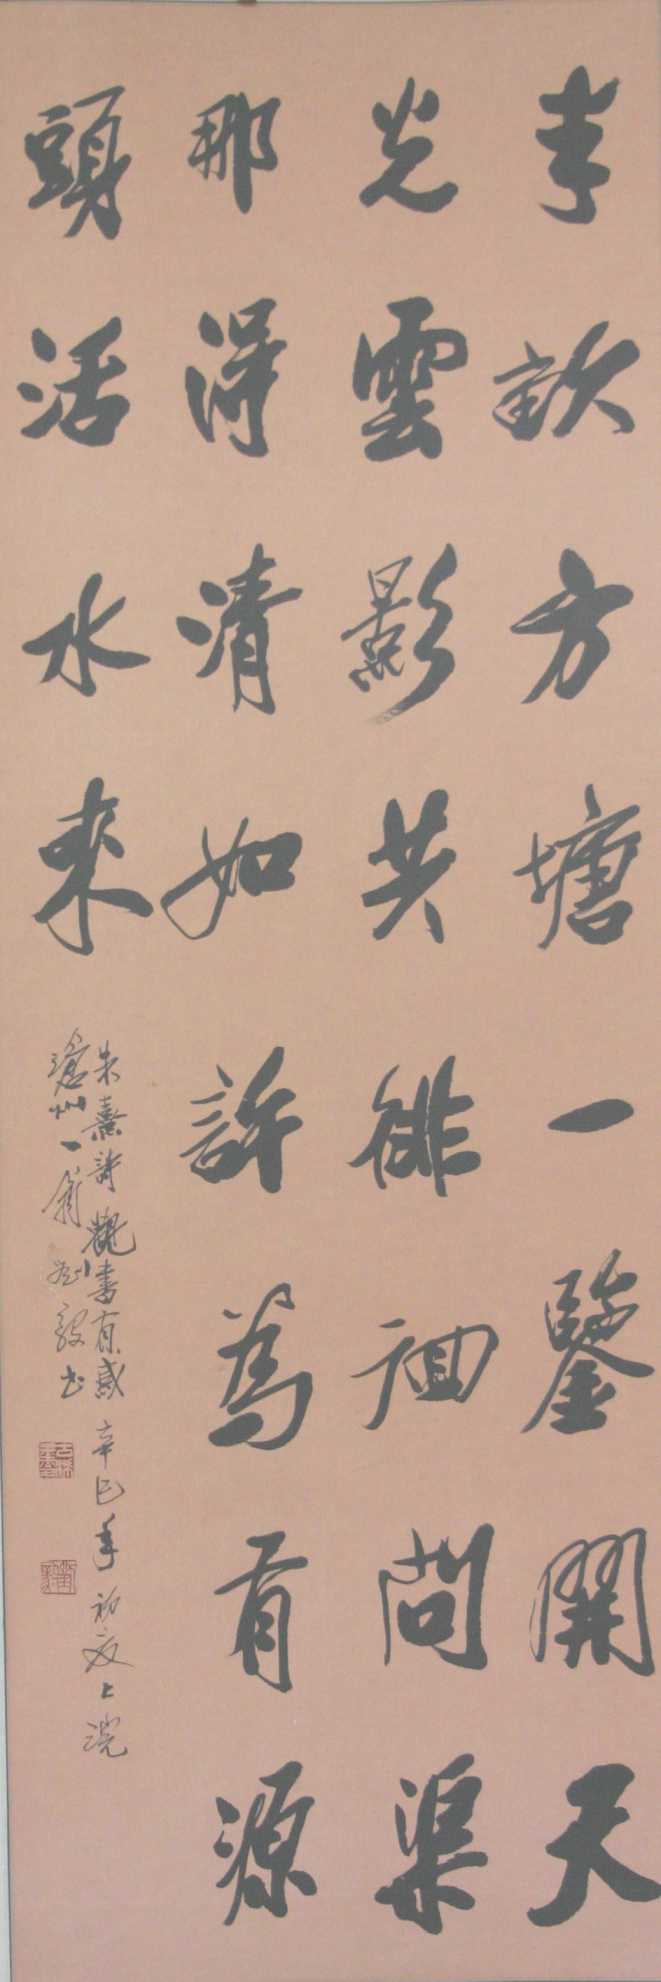 半畝方塘一鑒開天
光雲影共徘徊問渠
那得清如許為有源
頭活水來
朱熹詩觀書有感 辛巳年初夏上浣
滄州一翁 劉毅書